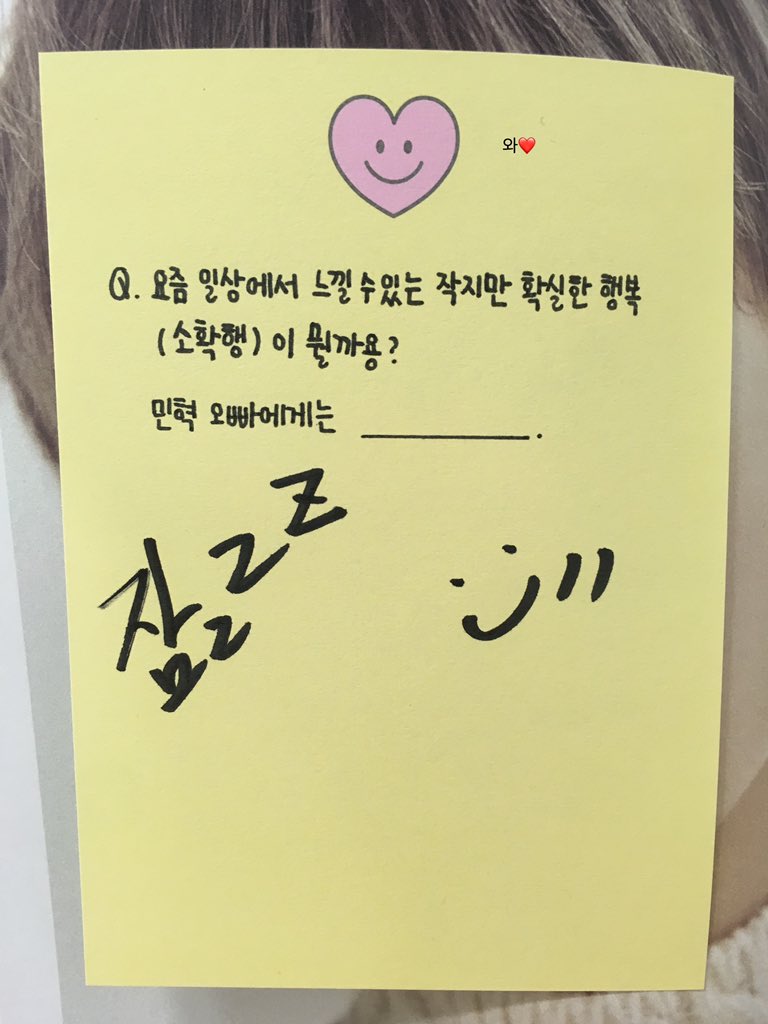 와❤️
Q. 요즘 일상에서 느낄 수 있는 작지만 확실한 행복
(소확행) 이 뭘까용?
민혁 오빠에게는 ________.
잠zzZ
:)"